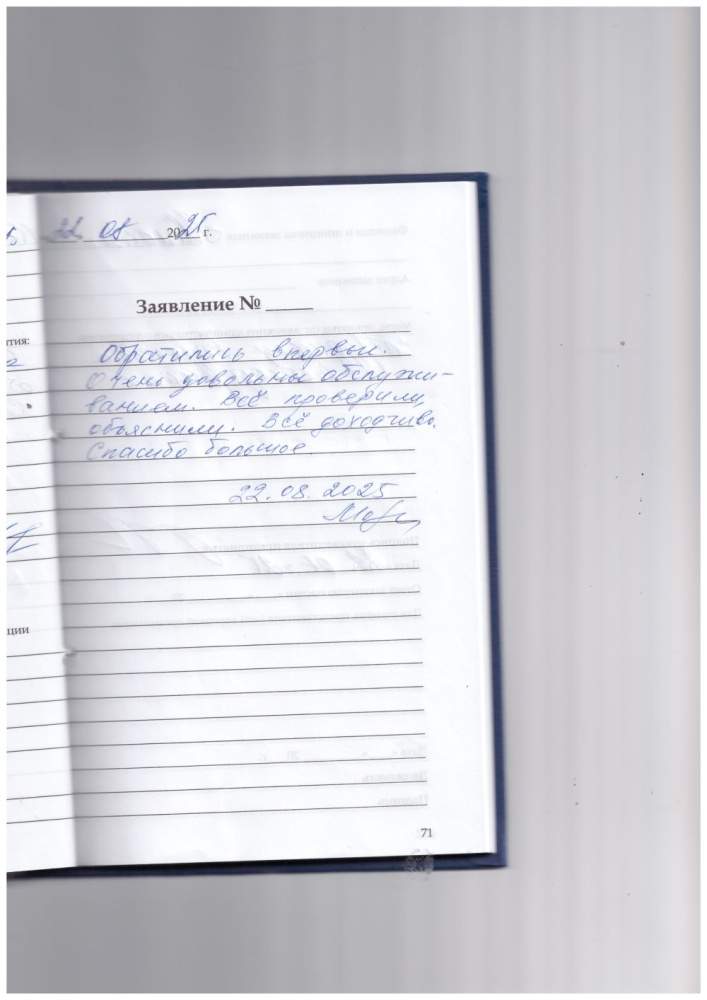 22 08 2025 г.
Заявление №
Обратились впервые.
Очень довольны обслужи-
ванием. Всё проверили,
объяснили. Всё доходчиво.
Спасибо большое.
22.08.2025
тия:
ции
71